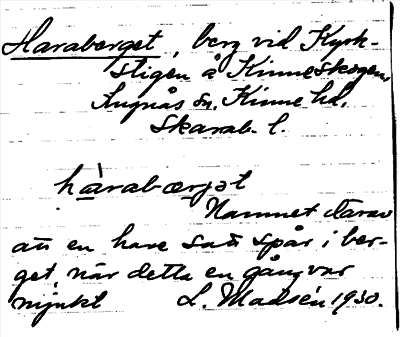 Haraberget, berg vid Kyrk-
stigen å Kinneskogen,
Lugnås sn, Kinne hd,
Skarab. l.
hàrabærjət
Namnet därav
att en hare satt spår i ber-
get, när detta en gång var
mjukt L. Madsén 1930.